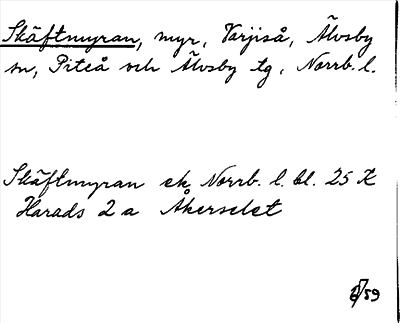 Skäftmyran, myr, Varjiså, Älvsby
sn, Piteå och Älvsby tg, Norrb. l.
Skäftmyran ek Norrb. l. bl. 25 K
Harads 2 a Åkerselet
/59